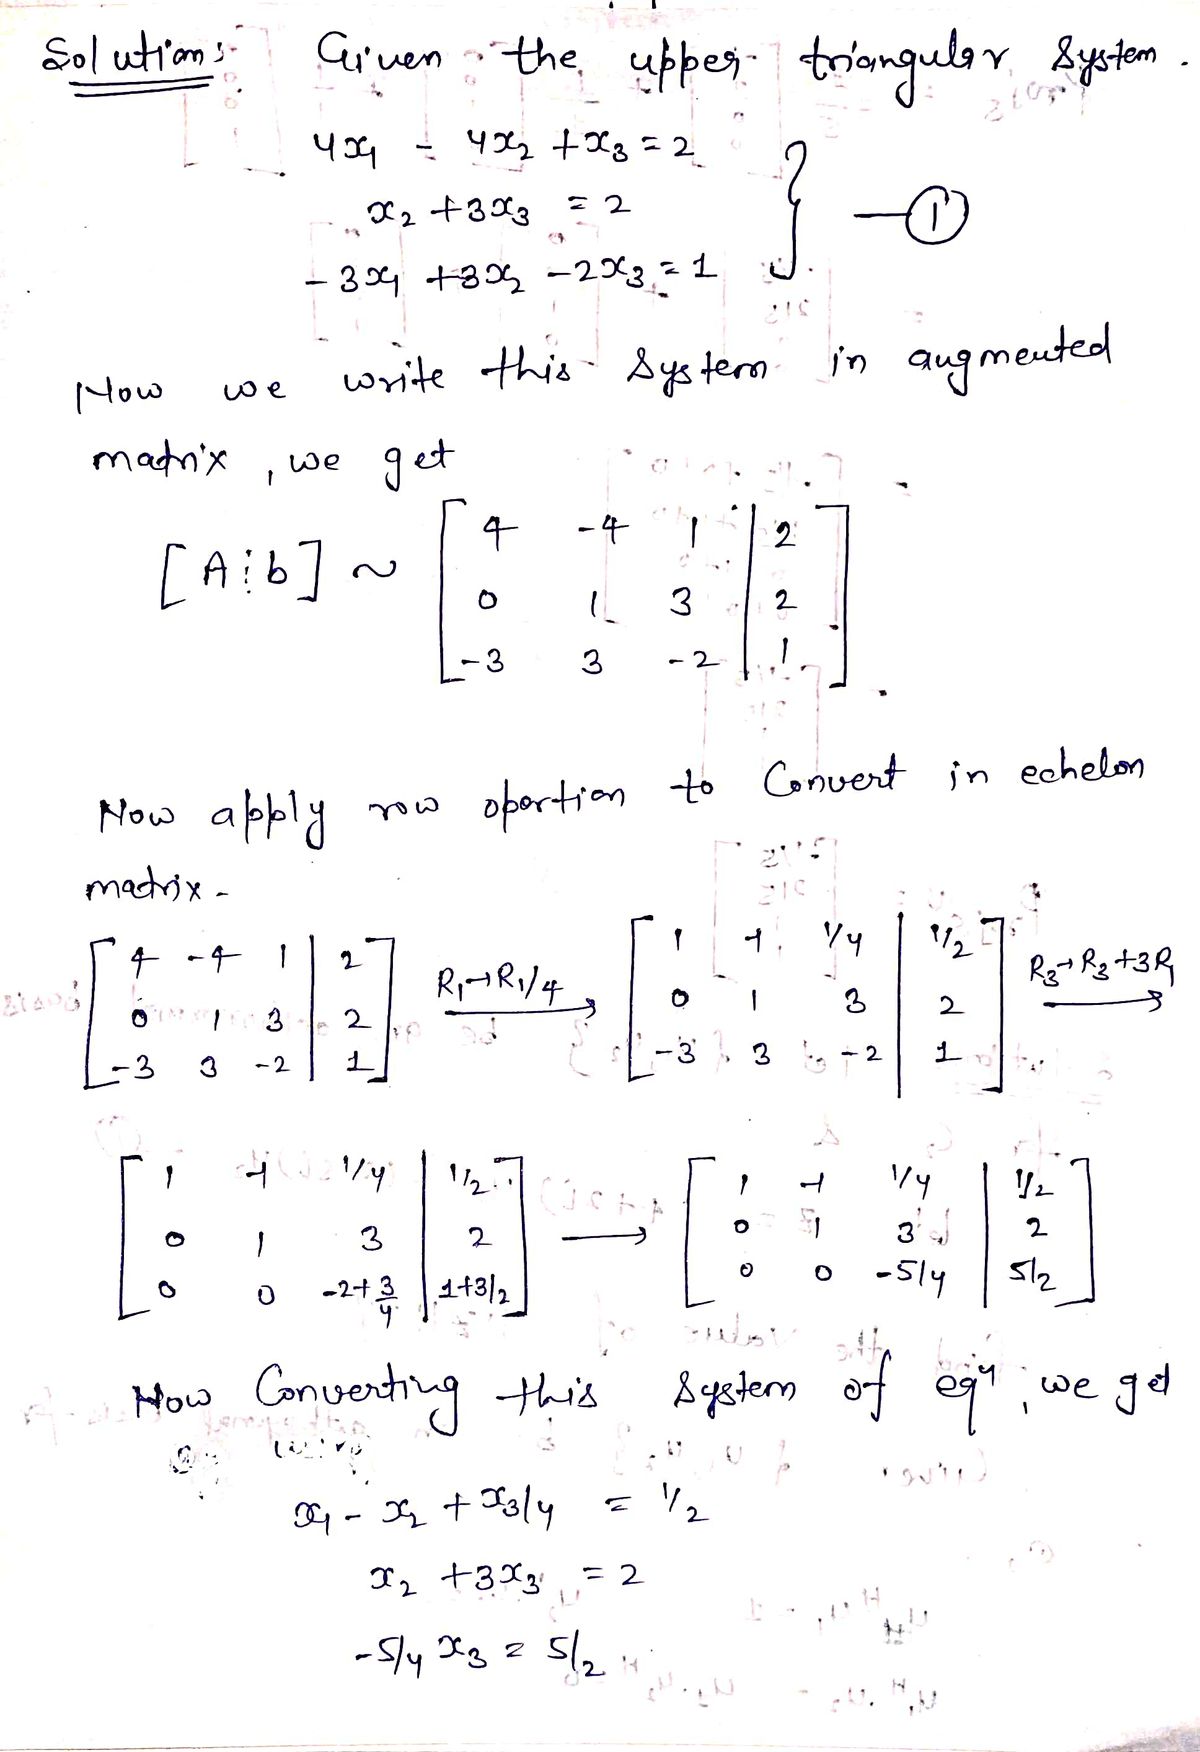 Solution: Given the upper triangular System.
4x₁ - 4x₂ + x₃ = 2
x₂ + 3x₃ = 2 } — ①
-3x₁ + 3x₂ - 2x₃ = 1
Now we write this System in augmented
matrix, we get
[A ⋮ b] ~ [ 4 -4 1 | 2 ]
0 1 3 | 2
-3 3 -2 | 1
Now apply row opertion to Convert in echelon
matrix -
[ 4 -4 1 | 2 ] R₁→R₁/4 [ 1 -1 1/4 | 1/2 ] R₃→R₃+3R₁
0 1 3 | 2 0 1 3 | 2
-3 3 -2 | 1 -3 3 -2 | 1
[ 1 -1 1/4 | 1/2 ] → [ 1 -1 1/4 | 1/2 ]
0 1 3 | 2 0 1 3 | 2
0 0 -2+3/4 | 1+3/2 0 0 -5/4 | 5/2
Now Converting this System of eqⁿ, we get
x₁ - x₂ + x₃/4 = 1/2
x₂ + 3x₃ = 2
-5/4 x₃ = 5/2